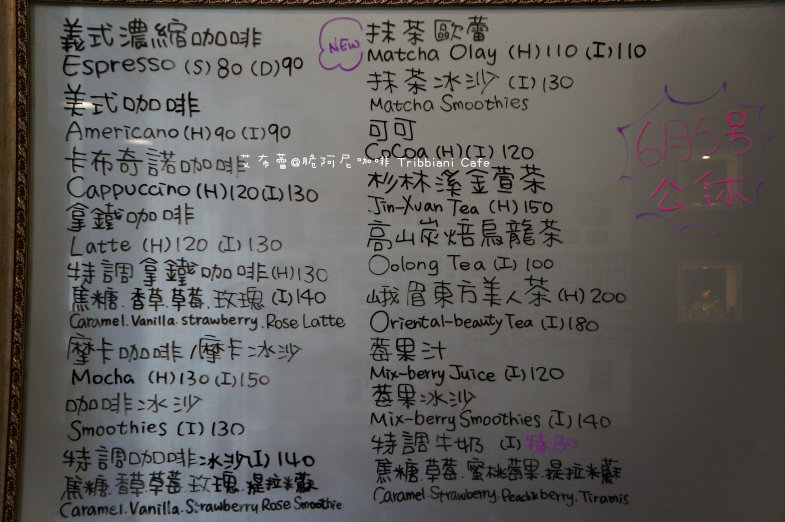 義式濃縮咖啡
Espresso (S) 80 (D) 90
美式咖啡
Americano (H) 90 (I) 90
卡布奇諾咖啡
Cappuccino (H) 120 (I) 130
拿鐵咖啡
Latte (H) 120 (I) 130
特調拿鐵咖啡 (H) 130
焦糖.香草.草莓.玫瑰 (I) 140
Caramel.Vanilla.strawberry.Rose Latte
摩卡咖啡/摩卡冰沙
Mocha (H) 130 (I) 150
咖啡冰沙
Smoothies (I) 130
特調咖啡冰沙(I) 140
焦糖.香草草莓.玫瑰.提拉米蘇
Caramel.Vanilla.Strawberry Rose Smoothie
NEW
抹茶歐蕾
Matcha Olay (H) 110 (I) 110
抹茶冰沙 (I) 130
Matcha Smoothies
可可
CoCoa (H) (I) 120
杉林溪金萱茶
Jin-Xuan Tea (H) 150
高山炭焙烏龍茶
Oolong Tea (I) 100
峨眉東方美人茶 (H) 200
Oriental-beauty Tea (I) 180
莓果汁
Mix-berry Juice (I) 120
莓果冰沙
Mix-berry Smoothies (I) 140
特調牛奶 (I) 特80
焦糖.草莓.蜜桃莓果.提拉米蘇
Caramel.Strawberry.Peach&berry.Tiramis
6月5號
公休
艾布蕾@脆阿尼咖啡 Tribbiani Cafe